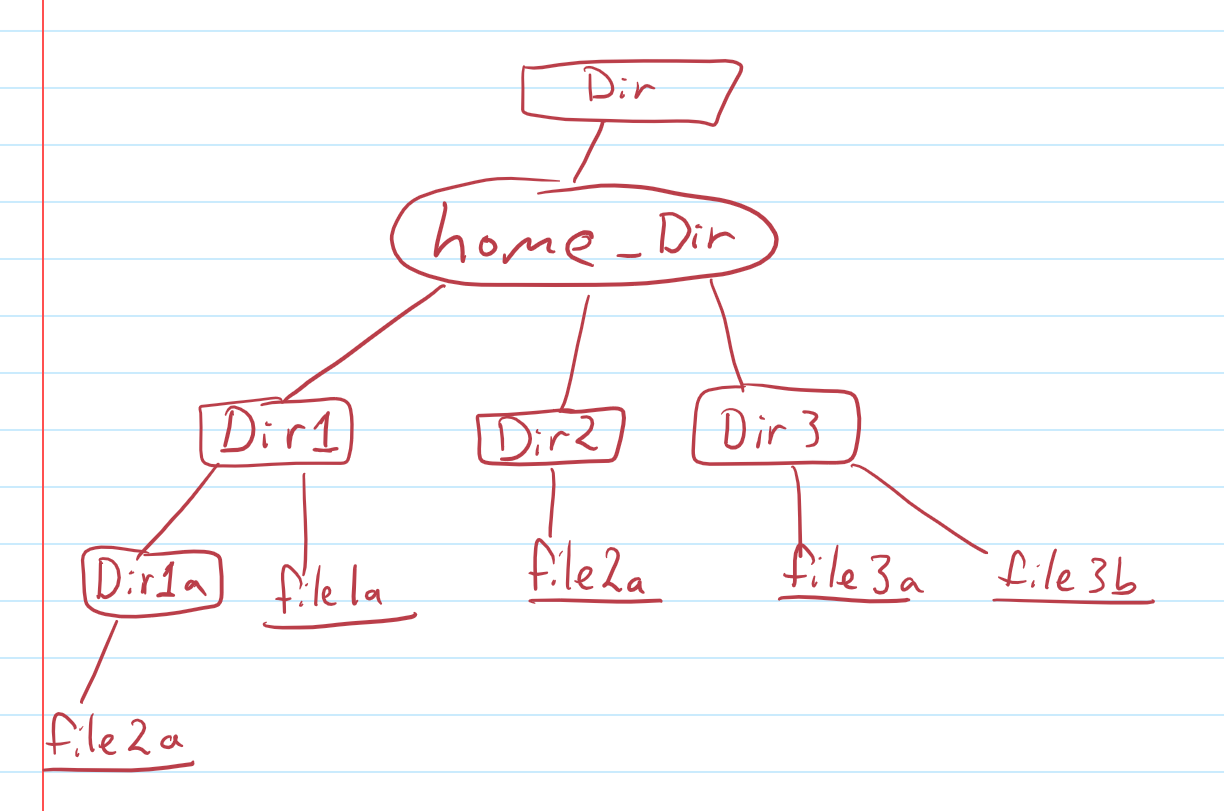 Dir
home_Dir
Dir1 Dir2 Dir3
Dir1a file1a file2a file3a file3b
file2a